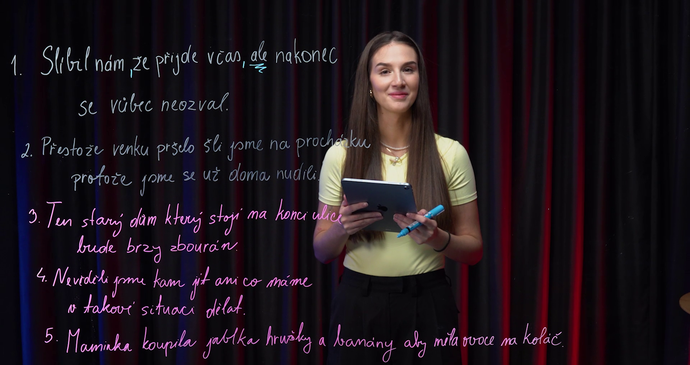 1. Slíbil nám, že přijde včas, ale nakonec
se vůbec neozval.
2. Přestože venku pršelo šli jsme na procházku
protože jsme se už doma nudili.
3. Ten starý dům který stojí na konci ulice
bude brzy zbourán.
4. Nevěděli jsme kam jít ani co máme
v takové situaci dělat.
5. Maminka koupila jablka hrušky a banány aby měla ovoce na koláč.